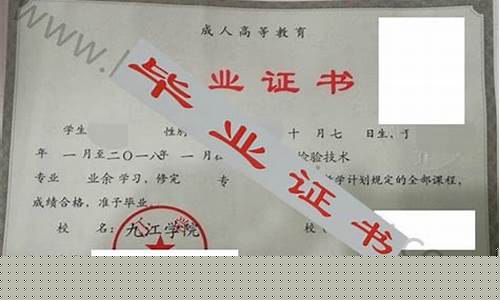 www.
成人高等教育
毕业证书
毕业证书
学生 性别 十 月七 日生,于
年 一月至二〇一八年 一月在 检验技术
专业 业余 学习,修完 专 学计划规定的全部课程,
成绩合格,准予毕业。
校 名: 九江学院 校(